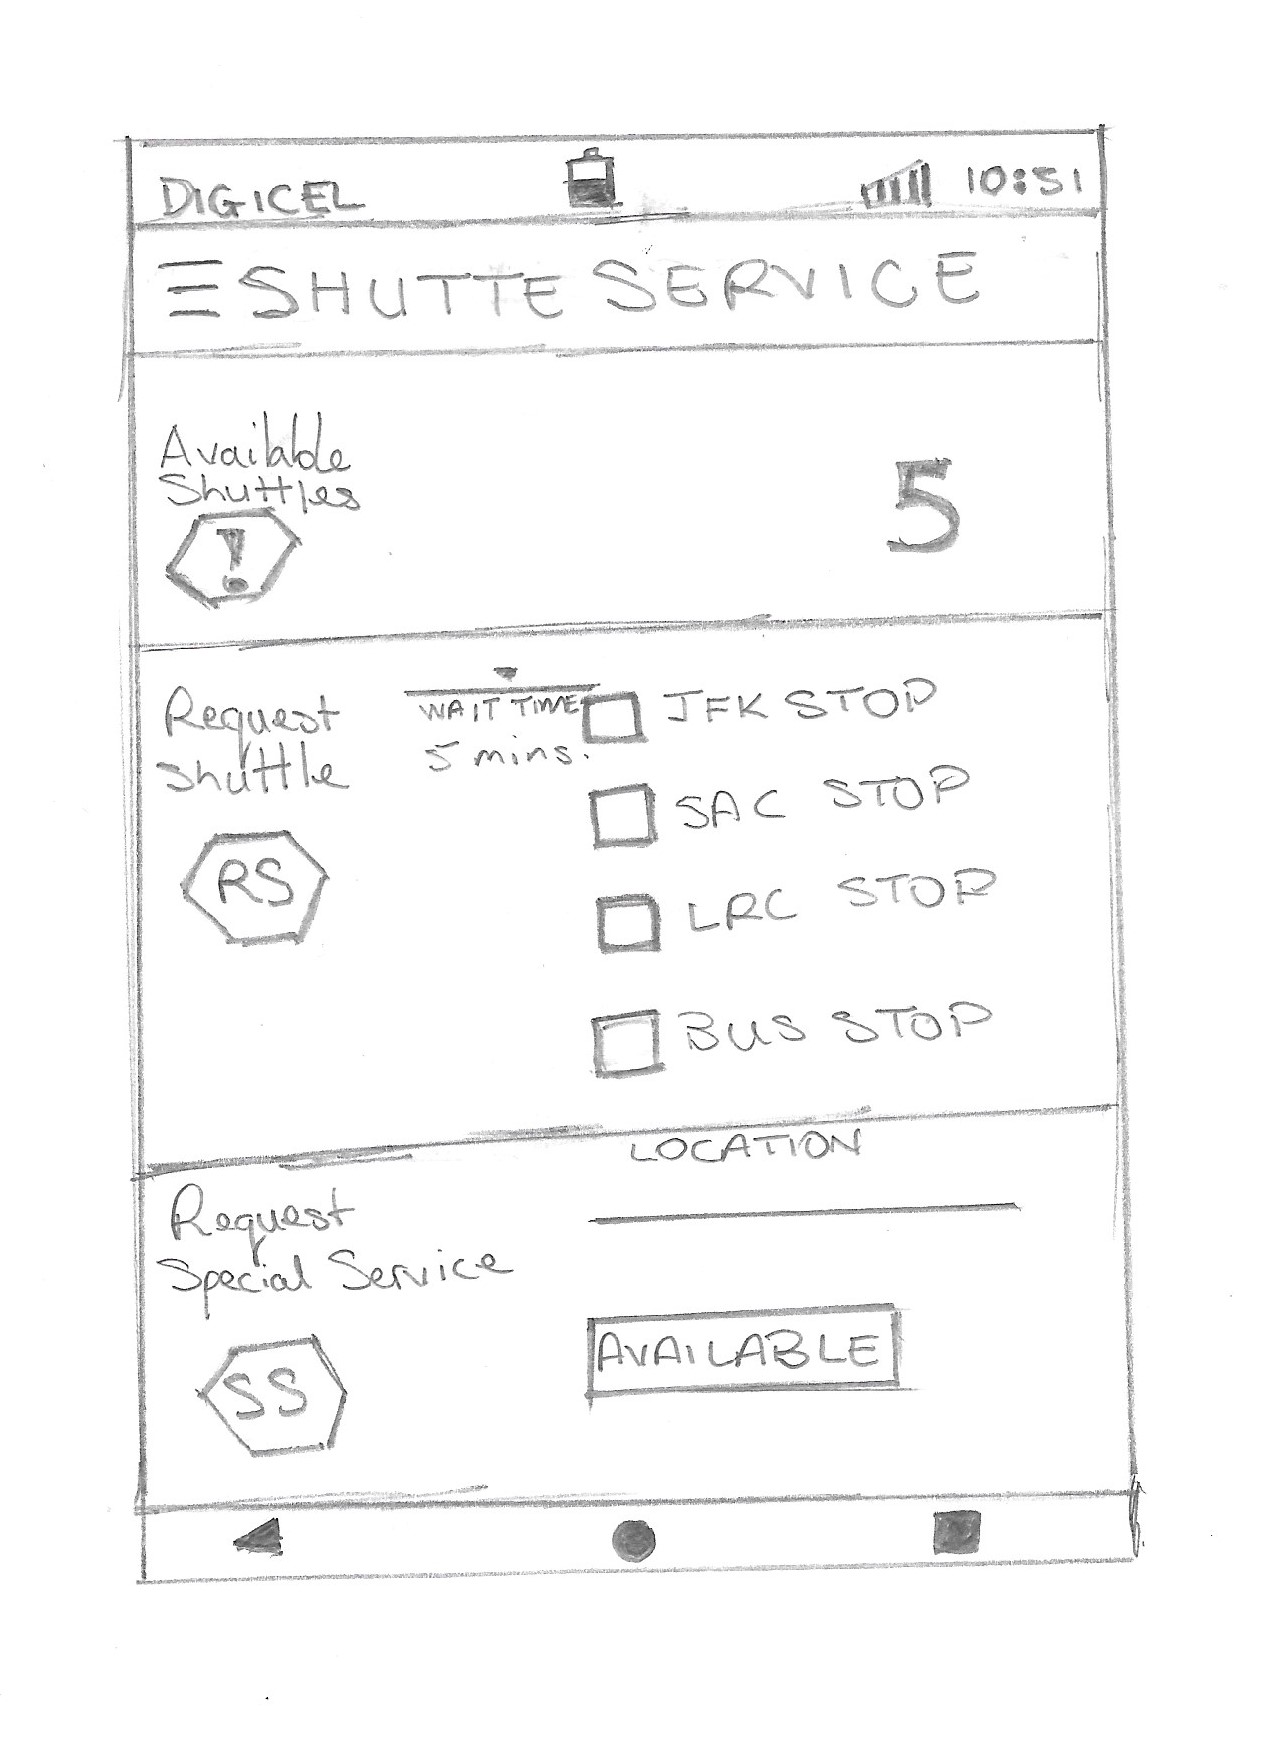 DIGICEL 10:51
SHUTTE SERVICE
Available
Shuttles
!
5
Request
Shuttle
RS
WAIT TIME
5 mins.
JFK STOP
SAC STOP
LRC STOP
BUS STOP
LOCATION
Request
Special Service
SS
AVAILABLE